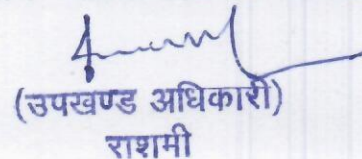 (उपखण्ड अधिकारी)
राशमी